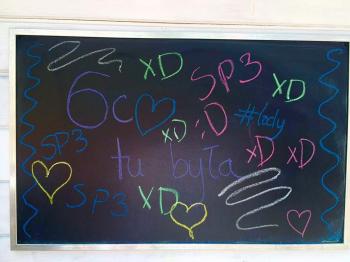 XD SP3 XD
6c XD ;D #lady
SP3 tu była XD XD
SP3 XD